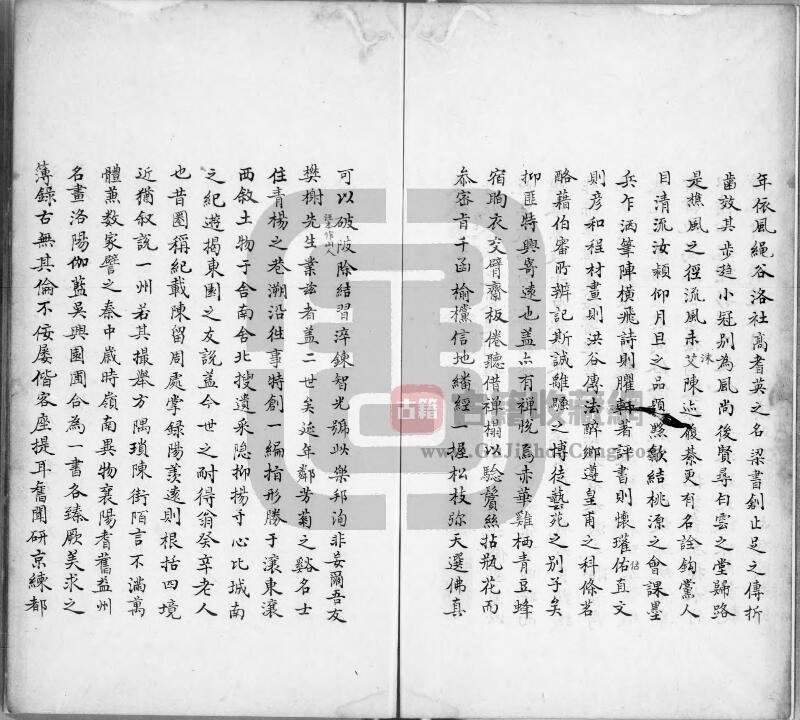 年依風繩谷洛社高耆英之名梁書創止足之傳折
齒效其步趨小冠別為風尚後賢尋白雲之堂歸路
是樵風之徑流風未艾陳迹履綦更有名詮鉤黨人
沬
目清流汝潁仰月旦之品題黟歙結桃源之會課墨
兵乍洒筆陣橫飛詩則臞軒著評書則懷瓘佑直文
估
則彥和程材畫則洪谷傳法醉鄉遵皇甫之科條茗
酪藉伯審所辨記斯誠雕騷之博徒藝苑之別子矣
抑匪特興寄遠也蓋亦有禪悅焉赤華雞栖青豆蜂
宿朐衣交臂齋板倦聽借禪榻以颺鬢絲拈瓶花而
叅密肯千函榆欓信地繙經一握松枝弥天選佛真
可以破陂除結習淬鍊智光號此樂邦洵非妄爾吾友
樊榭先生業玆者蓋二世矣延年鄰芳菊之谿名士
註本作山人
住青楊之巷溯沿往事特創一編指形勝于瀼東瀼
西敘土物于舍南舍北搜遺采隐抑揚乎心比城南
之紀遊揭東園之友說蓋今世之耐得翁癸辛老人
也昔圈稱紀載陳留周處掌錄陽羨遠則根括四境
近猶叙說一州若其撮舉方隅瑣陳街陌言不滿萬
體薫数家譬之秦中歲時嶺南異物襄陽耆舊益州
名畫洛陽伽藍吳興園囿合為一書各臻厥美求之
簿錄古無其倫不佞屡偕客座提耳舊聞研京練都
古籍
古籍收藏網
www.GuJiShouCang.com